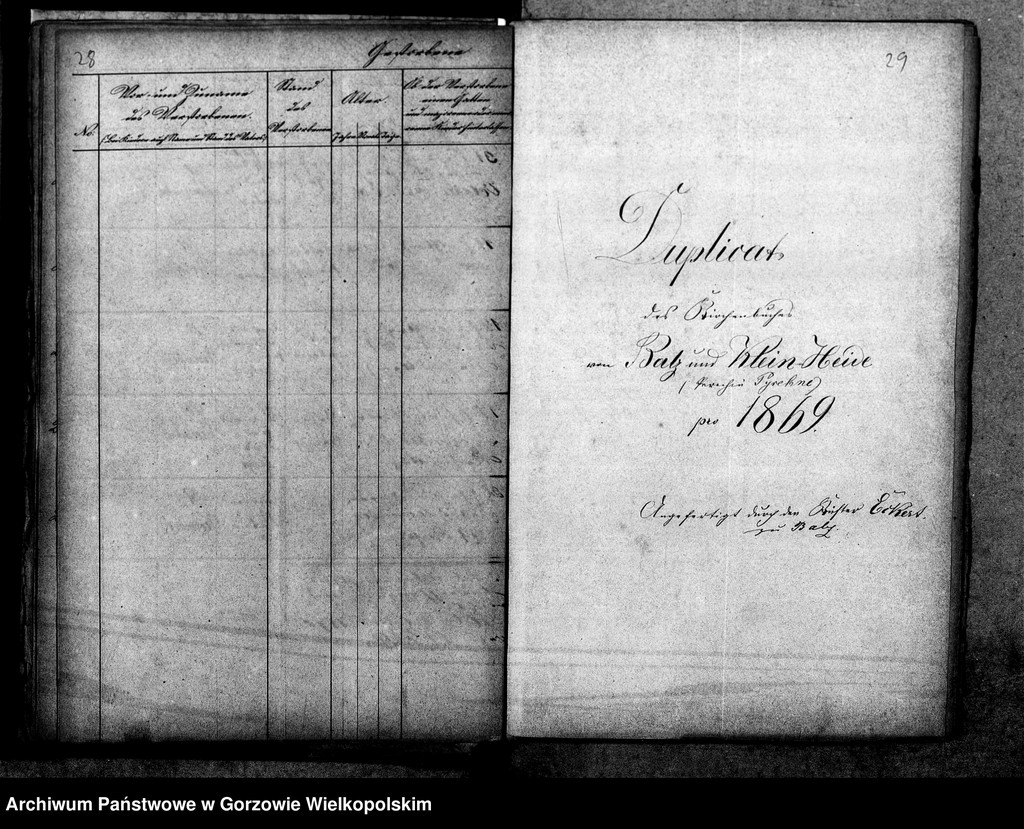 28
Gestorbene
No.
Vor- und Zuname
des Verstorbenen.
(bei Kindern auch Name und Stand des Vaters)
Stand
des
Verstorbenen
Alter.
Jahre Monate Tage
Ob der Verstorbene
einen Gatten
29
Duplicat
des Kirchenbuches
von Balz und Klein-Heide
(Parochie Pyrehne)
pro 1869.
Angefertigt durch den Küster Eckert
zu Balz.
Archiwum Państwowe w Gorzowie Wielkopolskim